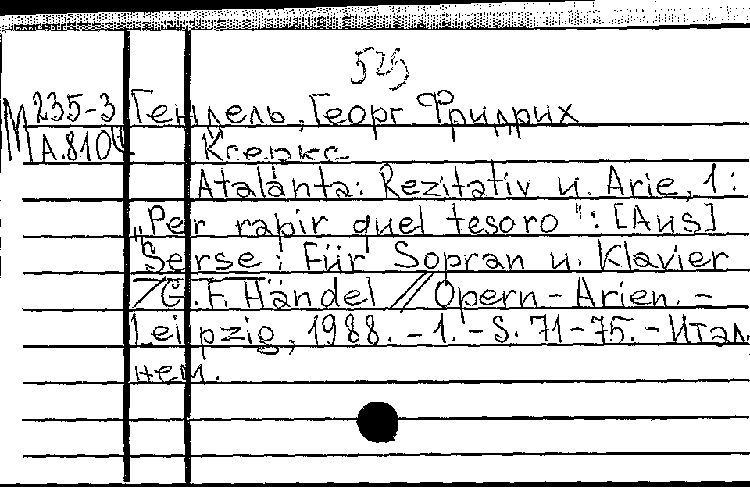 529
М 235-3 Гендель, Георг Фридрих
А.8104 Ксеркс
Atalanta: Rezitativ u. Arie, 1:
„Per rapir quel tesoro": [Aus]
Serse: Für Sopran u. Klavier
/G. F. Händel // Opern-Arien. -
Leipzig, 1988. - 1. - S. 71-75. - Итал.,
нем.